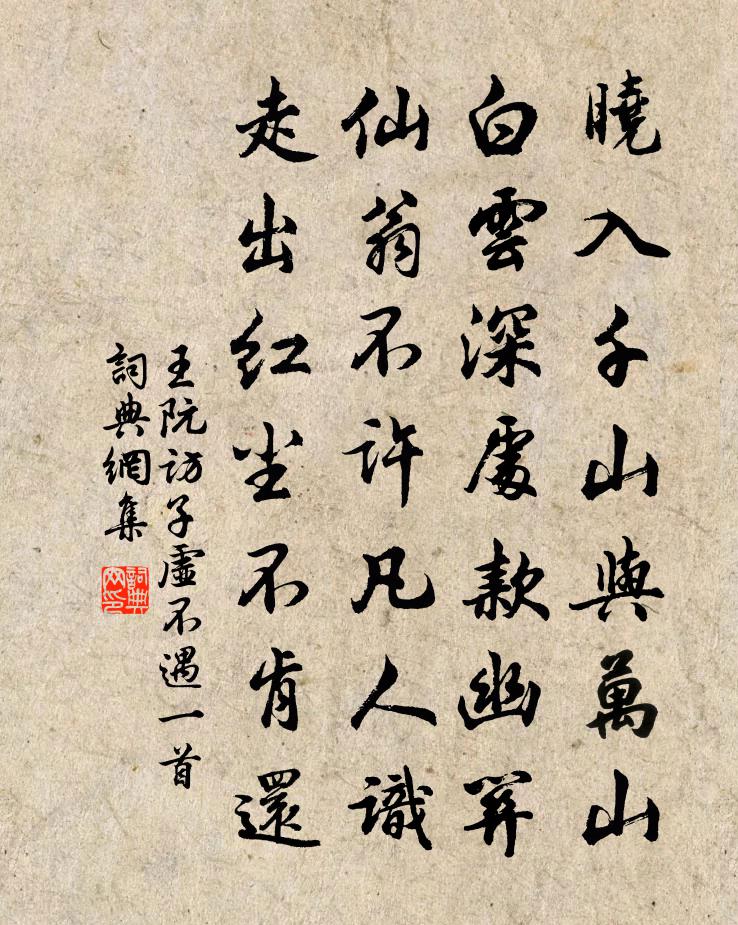 曉入千山與萬山
白雲深處款幽關
仙翁不許凡人識
走出紅尘不肯還
王阮訪子虛不遇一首
詞典網集
詞典网印